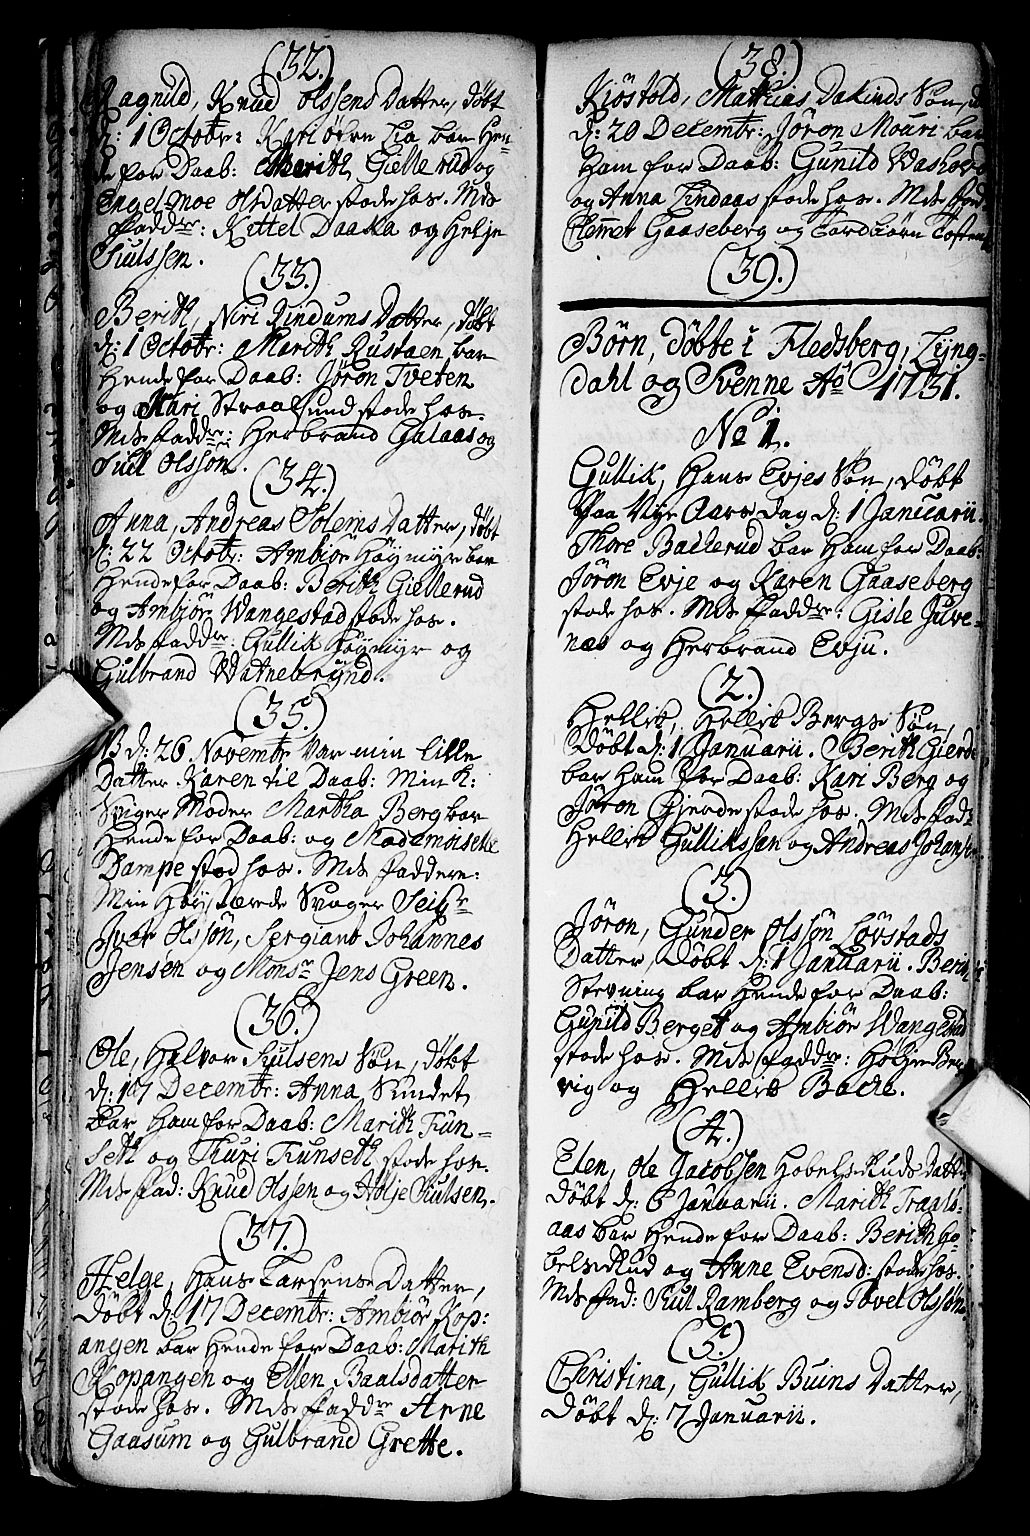 (32.)
Ragnild, Knud Olssens Datter, døbt
d: 1 Octobr: Kari øvre Lia bar Hen-
de for Daab: Marith Gislerud og
Engel moe Olsdatter stode hos. Mds
faddre: Kittel Daaka og Helje
Juulssen.
(33.)
Berith, Niri Rindums Datter, døbt
d: 1 Octobr: Marith Rustaen bar
Hende for Daab: Jøron Tveten
og Kari Straalsund stode hos.
Mds faddre: Herbrand Galaas og
Juel Olsson.
(34.)
Anna, Andreas Solems Datter, døbt
d: 22 Octobr: Ambiør Høymyr bar
Hende for Daab: Berith Giellerud
og Ambiør Wangestad stode hos.
Mds faddre: Gullik Høymyr og
Gulbrand Watnebrÿnd.
(35.)
NB d: 26 Novembr Var min lille
Datter Karen til Daab: Min K:
Sviger Moder Martha Berg bar
Hende for Daab: og Mademoiselle
Dampe stod hos. Mds faddere:
Min Høystærede Svoger Seigr
Iver Olssøn, Sergiant Johannes
Jensen og Monsr Jens Green.
(36.)
Ole, Halvor Juulsens Søn, døbt
d: 17 Decembr: Anna Sundet
bar Ham for Daab: Marith Tun-
seth og Thuri Tunseth stode hos.
Mds fad: Knud Olssen og Holje Juulsen.
(37.)
Helge, Hans Larsens Datter,
døbt d: 17 Decembr: Ambiør Kop-
angen bar Hende for Daab: Marith
Kopangen og Ellen Baalsdatter
stode hos. Mds faddre Arne
Gaasum og Gulbrand Grette.
(38.)
Kiøstold, Mathias Dakinds Søn,
d: 20 Decembr: Jøron Mouri bar
Ham for Daab: Gunild
og Anna Lindaas stode hos. Mds
Clemet Gaaseberg og Tordbiørn
(39.)
Børn, døbte i Fledsberg, Lyng-
dahl og Svenne Ao 1731.
No 1.
Gullik, Hans Evjes Søn, døbt
paa Nye Aars Dag d: 1 Januarii.
Thore Bacherud bar Ham for Daab:
Jøron Evje og Karen Gaaseberg
stode hos. Mds faddre: Gisle Juve-
næs og Herbrand Evju.
(2.)
Hellik, Hellik Bergs Søn,
døbt d: 1 Januarii. Berith Gierde
bar Ham for Daab: Kari Berg og
Jøron Gierde stode hos. Mds fad:
Hellik Gulliksson og Andreas
(3.)
Jøron, Gunder Olssøn Løvstads
Datter, døbt d: 1 Januarii.
Stevning bar Hende for Daab:
Gunild Berget og Ambiør Wangestad
stode hos. Mds faddre: Holje Ber-
vig og Hellik Bache.
(4.)
Elen, Ole Jacobsen Hobelsrluds Datter
døbt d: 6 Januarii. Marith Traals-
aas bar Hende for Daab: Berith Ho-
belsrlud og Anne Evensd: stode hos.
Mds fad: Juul Ramberg og Povel Olssøn.
(5.)
Christina, Gullik Buins Datter,
døbt d: 7 Januarii.